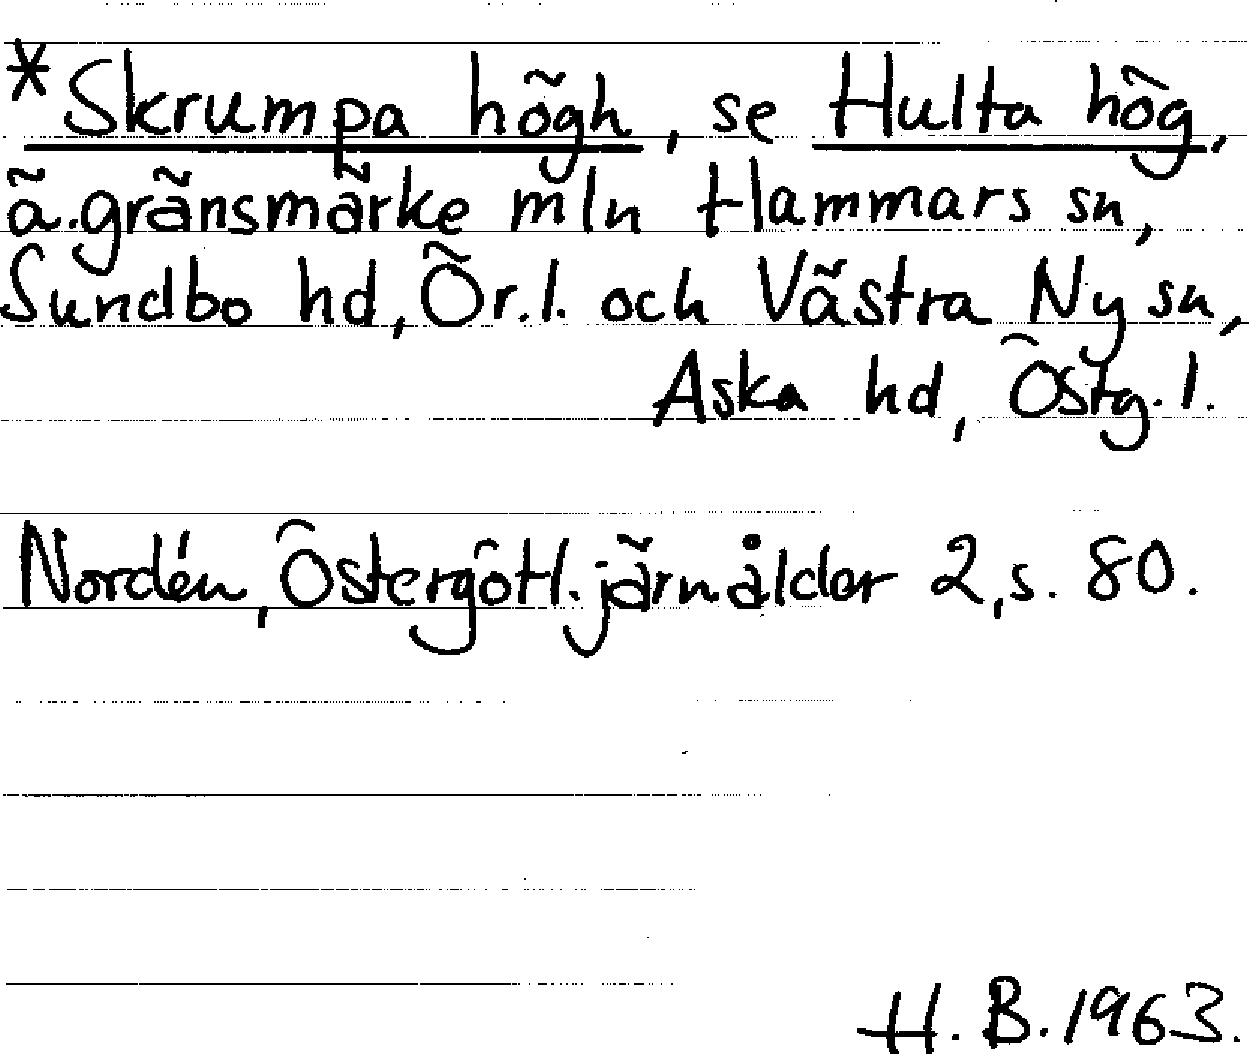 *Skrumpa högh, se Hulta hög,
ä. gränsmärke mln Hammars sn,
Sundbo hd, Ör. l. och Västra Ny sn,
Aska hd, Östg. l.
Nordén, Östergötl. järnålder 2, s. 80.
H. B. 1963.